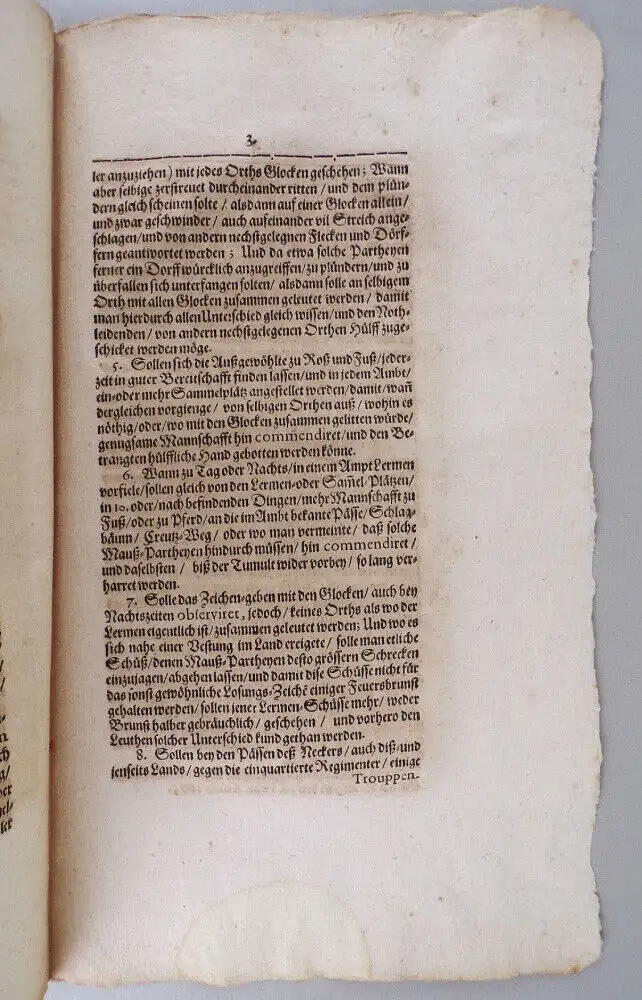 3.
ler anzuziehen) mit jedes Orths Glocken geschehen; Wann
aber selbige zerstreuet durcheinander ritten / und dem plün-
dern gleich scheinen solte / alsdann auf einer Glocken allein /
und zwar geschwinder / auch aufeinander vil Streich ange-
schlagen / und von andern nechstgelegnen Flecken und Dörf-
fern geantwortet werden ; Und da etwa solche Partheyen
ferner ein Dorff würcklich anzugreiffen / zu plündern / und zu
überfallen sich unterfangen solten / alsdann solle an selbigem
Orth mit allen Glocken zusammen geleutet werden / damit
man hierdurch allen Unterschied gleich wissen / und den Noth-
leidenden / von andern nechstgelegenen Orthen Hülff zuge-
schicket werden möge.
5. Sollen sich die Außgewöhlte zu Roß und Fuß / jeder-
zeit in guter Bereitschafft finden lassen / und in jedem Ambt /
ein- oder mehr Sammelplätz angestellet werden / damit / wañ
dergleichen vorgienge / von selbigen Orthen auß / wohin es
nöthig / oder / wo mit den Glocken zusammen gelitten würde /
genugsame Mannschafft hin commendiret / und den Be-
trangten hülffliche Hand gebotten werden könne.
6. Wann zu Tag oder Nachts / in einem Ampt Lermen
vorfiele / sollen gleich von den Lermen- oder Sam̃el-Plätzen /
in 10. oder / nach befindenden Dingen / mehr Mannschafft zu
Fuß / oder zu Pferd / an die im Ambt bekante Pässe / Schlag-
bäum / Creutz-Weg / oder wo man vermeinte / daß solche
Mauß-Partheyen hindurch müssen / hin commendiret /
und daselbsten / biß der Tumult wider vorbey / so lang ver-
harret werden.
7. Solle das Zeichen-geben mit den Glocken / auch bey
Nachtszeiten observiret, jedoch / keines Orths als wo der
Lermen eigentlich ist / zusammen geleutet werden; Und wo es
sich nahe einer Vestung im Land ereigete / solle man etliche
Schüß / denen Mauß-Partheyen desto grössern Schrecken
einzujagen / abgehen lassen / und damit dise Schüsse nicht für
das sonst gewöhnliche Losungs-Zeichẽ einiger Feuersbrunst
gehalten werden / sollen jener Lermen-Schüsse mehr / weder
Brunst halber gebräuchlich / geschehen / und vorhero den
Leuthen solcher Unterschied kund gethan werden.
8. Sollen bey den Pässen deß Neckers / auch diß- und
jenseits Lands / gegen die einquartierte Regimenter / einige
Trouppen-